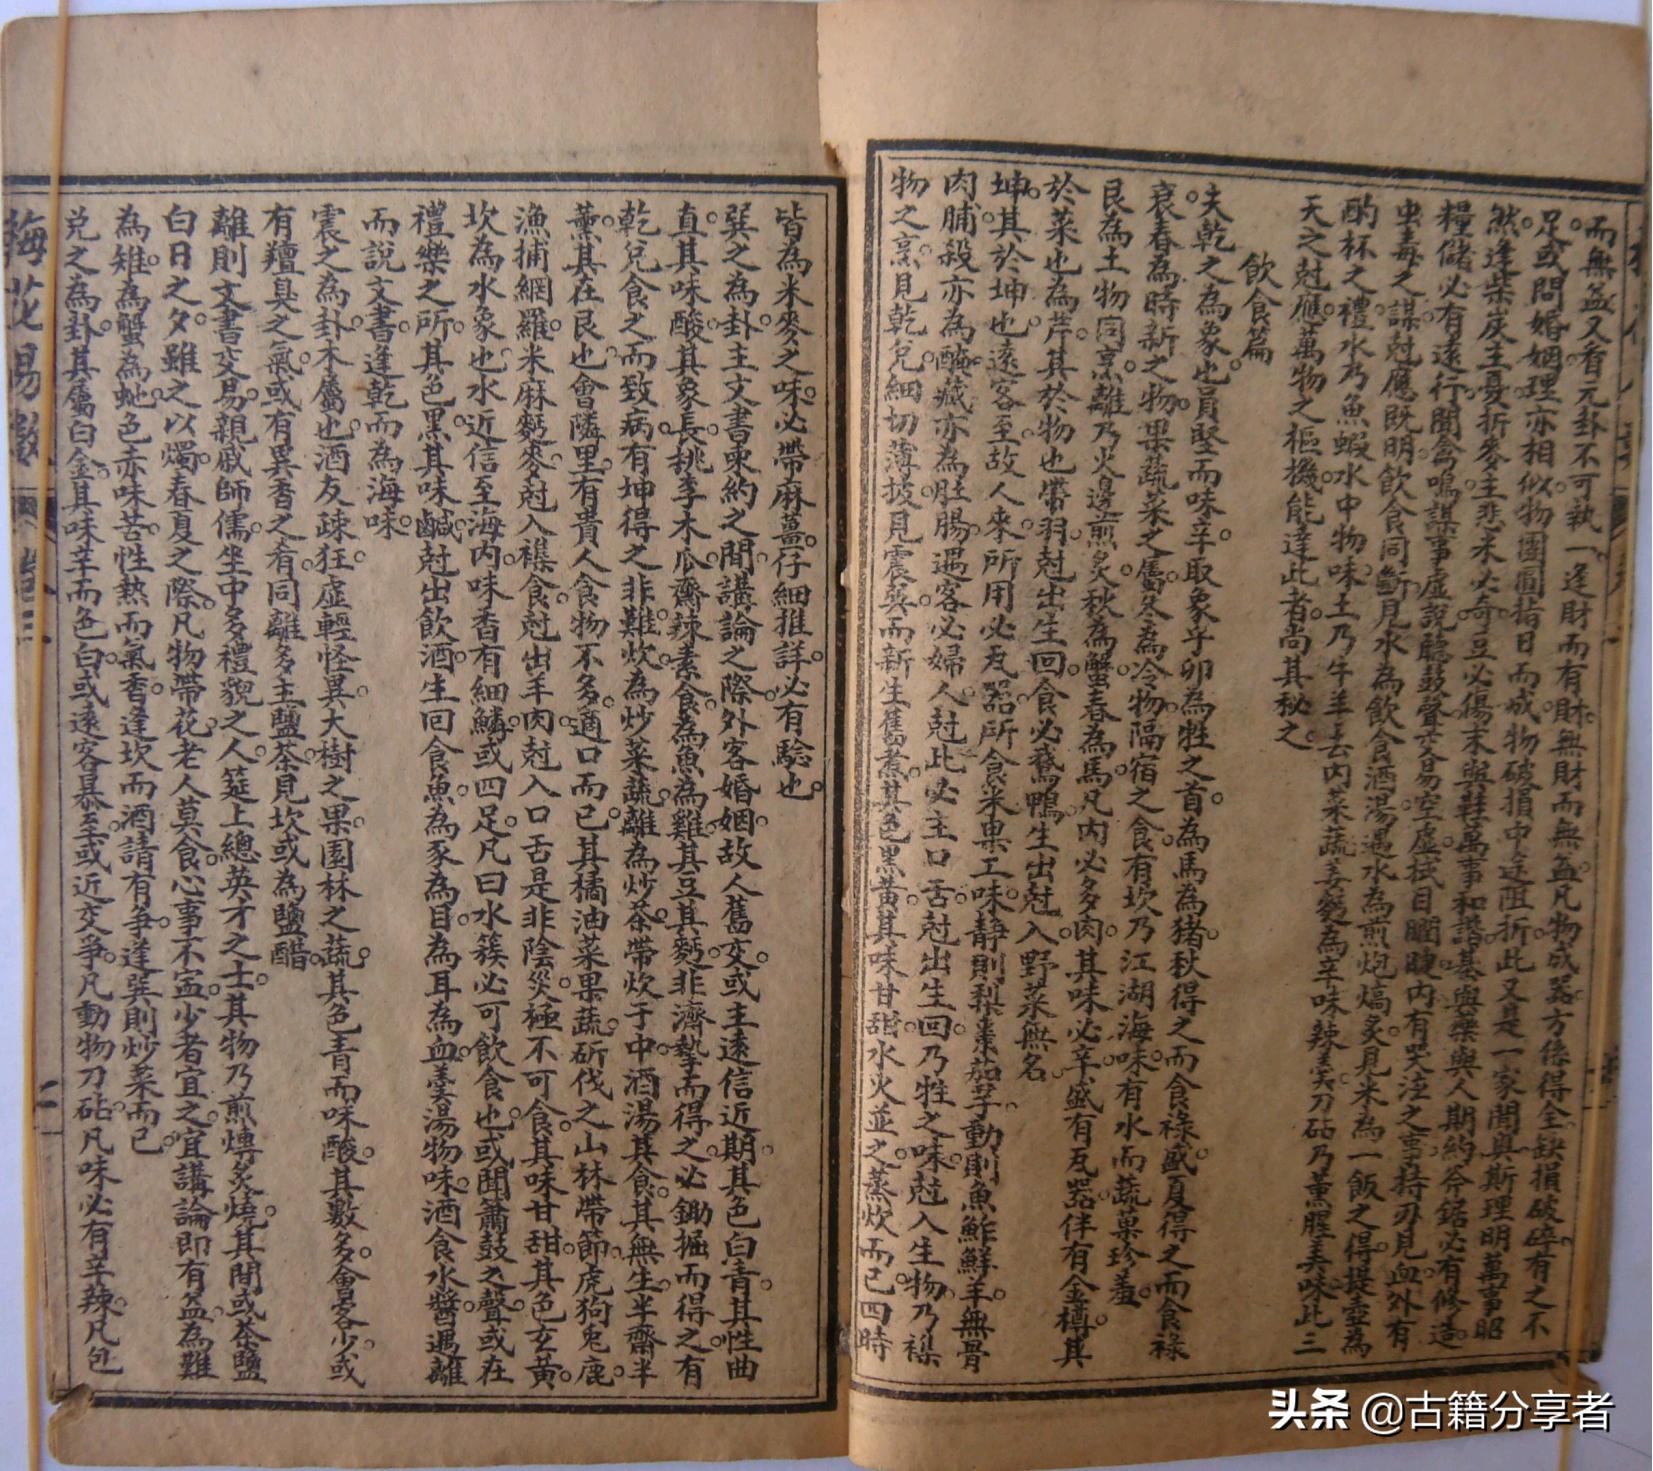 而無益又看元卦不可執一逢財而有財無財而無益凡物成器方係得全缺損破碎有之不
足或問婚姻理亦相似物團圓指日而成物破損中途阻折此又是一家閫奧斯理明萬事昭
然逢柴炭主憂折麥主悲米必奇豆必傷末與鞋萬事和諧棊與藥與人期約斧鋸必有修造
糧儲必有遠行聞禽鳴謀事虛說聽鼓聲交易空虛拭目潤睫內有哭泣之事持刃見血外有
虫毒之謀尅應既明飲食同斷見水為飲食酒湯遇水為煎炮熇炙見米為一飯之得提壺為
酌杯之禮水乃魚蝦水中物味土乃牛羊去內菜蔬姜麪為辛味辣羹刀砧乃薰腥美味此三
天之尅應萬物之樞機能達此者尚其秘之
飲食篇
夫乾之為象也員堅而味辛取象乎卯為牲之首為馬為猪秋得之而食祿盛夏得之而食祿
衰春為時新之物果蔬菜之屬冬為冷物隔宿之食有坎乃江湖海味有水而蔬菓珍羞
艮為土物同烹離乃火邊煎炙秋為蟹春為馬凡內必多肉其味必辛盛有瓦器伴有金樽其
於菜也為芹其於物也帶羽尅出生回食必鵞鴨生出尅入野菜無名
坤其於坤也遠客至故人來所用必瓦器所食米果工味靜則梨棗茄芋動則魚鮓鮮羊無骨
肉脯殺亦為醃藏亦為肚腸遇客必婦人尅此必主口舌尅出生回乃牲之味尅入生物乃襍
物之烹見乾兌細切薄披見震巽而新生舊煮其色黑黃其味甘甜水火並之蒸炊而已四時
皆為米麥之味必帶麻薑仔細推詳必有騐也
巽之為卦主文書柬約之間講論之際外客婚姻故人舊交或主遠信近期其色白青其性曲
直其味酸其象長桃李木瓜齋辣素食為魚為雞其豆其麪非濟摯而得之必鋤掘而得之有
乾兌食之而致病有坤得之非難炊為炒菜蔬離為炒茶帶炊于中酒湯其食其無生半齋半
薰其在艮也會隣里有貴人食物不多適口而已其橘油菜果蔬斫伐之山林帶節虎狗兎鹿
漁捕網羅米麻麪麥尅入襍食尅出羊肉尅入口舌是非陰災極不可食其味甘甜其色玄黃
坎為水象也水近信至海內味香有細鱗或四足凡曰水簇必可飲食也或聞蕭鼓之聲或在
禮樂之所其色黑其味鹹尅出飲酒生回食魚為豕為目為耳為血羹湯物味酒食水醬遇離
而說文書逢乾而為海味
震之為卦木屬也酒友疎狂虛輕怪異大樹之果園林之蔬其色青而味酸其數多會客少或
有羶臭之氣或有異香之肴同離多主鹽茶見坎或為鹽醋
離則文書交易親戚師儒坐中多禮貌之人筵上總英才之士其物乃煎燻炙燒其間或茶鹽
白日之夕雖之以燭春夏之際凡物帶花老人莫食心事不寍少者宜之宜講論即有益為雞
為雉為蟹為虵色赤味苦性熱而氣香逢坎而酒請有爭逢巽則炒菜而已
兌之為卦其屬白金其味辛而色白或遠客暮至或近交爭凡動物刀砧凡味必有辛辣凡包
梅花易數
頭條 @古籍分享者